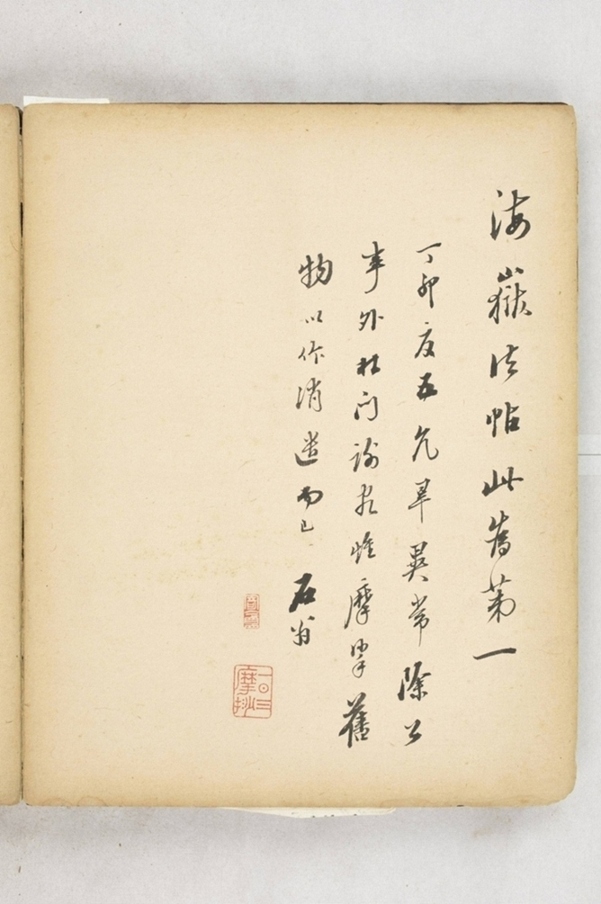 海嶽法帖此為第一
丁卯夏五亢旱異常除公
事外杜門謝客惟摩挲舊
物以作消遣而已 石翁